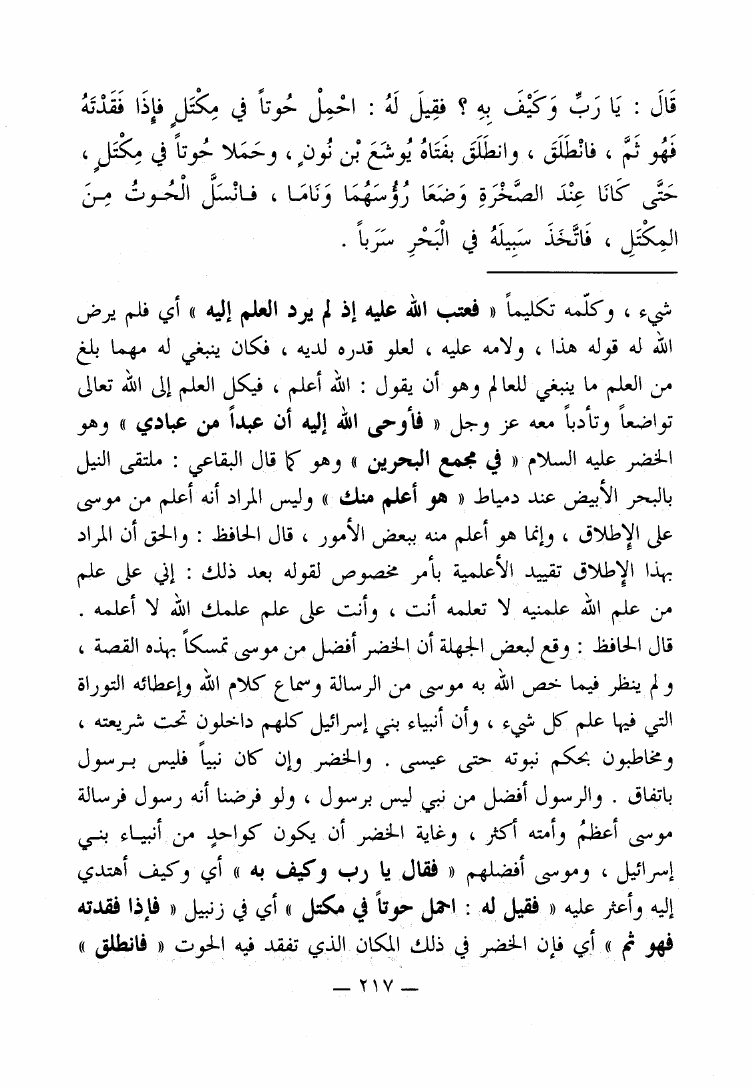 قَالَ : يَا رَبِّ وَكَيْفَ بِهِ ؟ فقِيلَ لَهُ : احْمِلْ حُوتاً في مِكْتَلٍ فإِذَا فَقَدْتَهُ
فَهُو ثَمَّ ، فانْطَلَقَ ، وانطَلَقَ بفَتَاهُ يُوشَعَ بْن نُونٍ ، وحَمَلا حُوتاً في مِكْتَلٍ ،
حَتَّى كَانَا عِنْدَ الصَّخْرَةِ وَضَعَا رُؤُسَهُمَا وَنَامَا ، فانْسَلَّ الْحُوتُ مِنَ
المِكْتَلِ ، فَاتَّخَذَ سَبِيلَهُ في الْبَحْرِ سَرَباً .
شيء ، وكلّمه تكليماً « فعتب الله عليه إذ لم يرد العلم إليه » أي فلم يرض
الله له قوله هذا ، ولامه عليه ، لعلو قدره لديه ، فكان ينبغي له مهما بلغ
من العلم ما ينبغي للعالم وهو أن يقول : الله أعلم ، فيكل العلم إلى الله تعالى
تواضعاً وتأدباً معه عز وجل « فأوحى الله إليه أن عبداً من عبادي » وهو
الخضر عليه السلام « في مجمع البحرين » وهو كما قال البقاعي : ملتقى النيل
بالبحر الأبيض عند دمياط « هو أعلم منك » وليس المراد أنه أعلم من موسى
على الإطلاق ، وإنما هو أعلم منه ببعض الأمور ، قال الحافظ : والحق أن المراد
بهذا الإطلاق تقييد الأعلمية بأمر مخصوص لقوله بعد ذلك : إني على علم
من علم الله علمنيه لا تعلمه أنت ، وأنت على علم علمك الله لا أعلمه .
قال الحافظ : وقع لبعض الجهلة أن الخضر أفضل من موسى تمسكاً بهذه القصة ،
ولم ينظر فيما خص الله به موسى من الرسالة وسماع كلام الله وإعطائه التوراة
التي فيها علم كل شيء ، وأن أنبياء بني إسرائيل كلهم داخلون تحت شريعته ،
ومخاطبون بحكم نبوته حتى عيسى . والخضر وإن كان نبياً فليس برسول
باتفاق . والرسول أفضل من نبي ليس برسول ، ولو فرضنا أنه رسول فرسالة
موسى أعظمُ وأمته أكثر ، وغاية الخضر أن يكون كواحدٍ من أنبياء بني
إسرائيل ، وموسى أفضلهم « فقال يا رب وكيف به » أي وكيف أهتدي
إليه وأعثر عليه « فقيل له : احمل حوتاً في مكتل » أي في زنبيل « فإذا فقدته
فهو ثم » أي فإن الخضر في ذلك المكان الذي تفقد فيه الحوت « فانطلق »
— ٢١٧ —